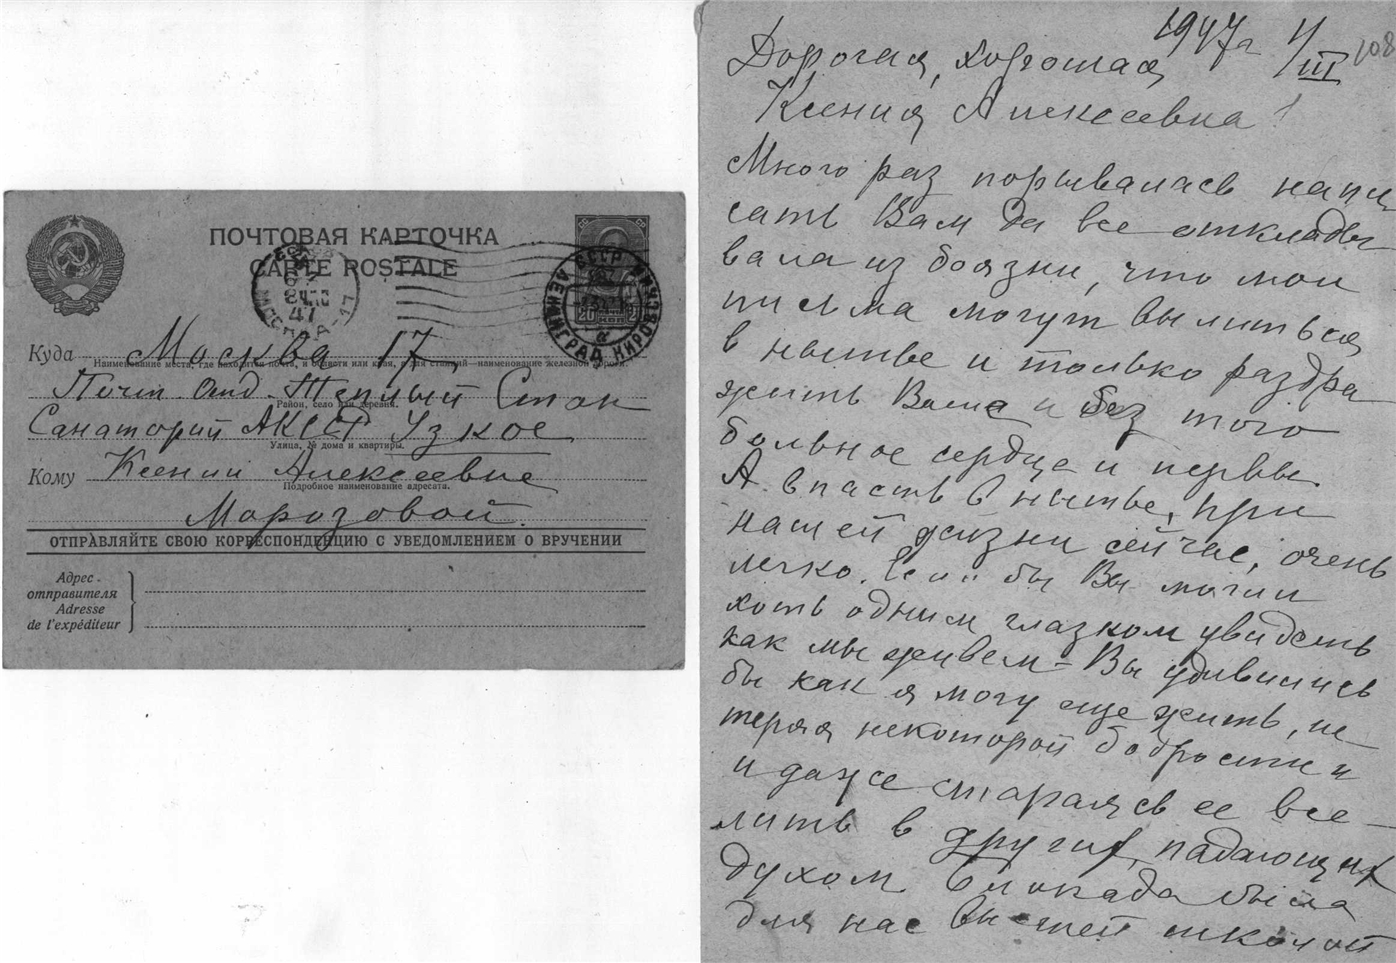 ПОЧТОВАЯ КАРТОЧКА
CARTE POSTALE
СССР
ЛЕНИНГРАД КИРОВСК
МОСКВА-17
47
20
Куда Москва 17
Наименование места, где находится почта, и области или края, а для станций—наименование железной дороги.
Почт. Отд. Теплый Стан
Район, село или деревня.
Санаторий АКССР Узкое
Улица, № дома и квартиры.
Кому Ксении Алексеевне
Подробное наименование адресата.
Морозовой.
ОТПРАВЛЯЙТЕ СВОЮ КОРРЕСПОНДЕНЦИЮ С УВЕДОМЛЕНИЕМ О ВРУЧЕНИИ
Адрес
отправителя
Adresse
de l'expéditeur
1947г 1/III 108
Дорогая, хорошая
Ксения Алексеевна!
Много раз порывалась напи-
сать Вам да все откладыв
вала из боязни, что мои
письма могут вылиться
в нытье и только раздра
жить Ваше и без того
больное сердце и нервы.
А впасть в нытье, при
нашей жизни сейчас, очень
легко. Если бы Вы могли
хоть одним глазком увидеть
как мы живем - Вы удивились
бы как я могу еще жить, не
теряя некоторой бодрости и
и даже стараясь ее все-
лить в других, падающих
духом Блокада была
для нас высшей школой